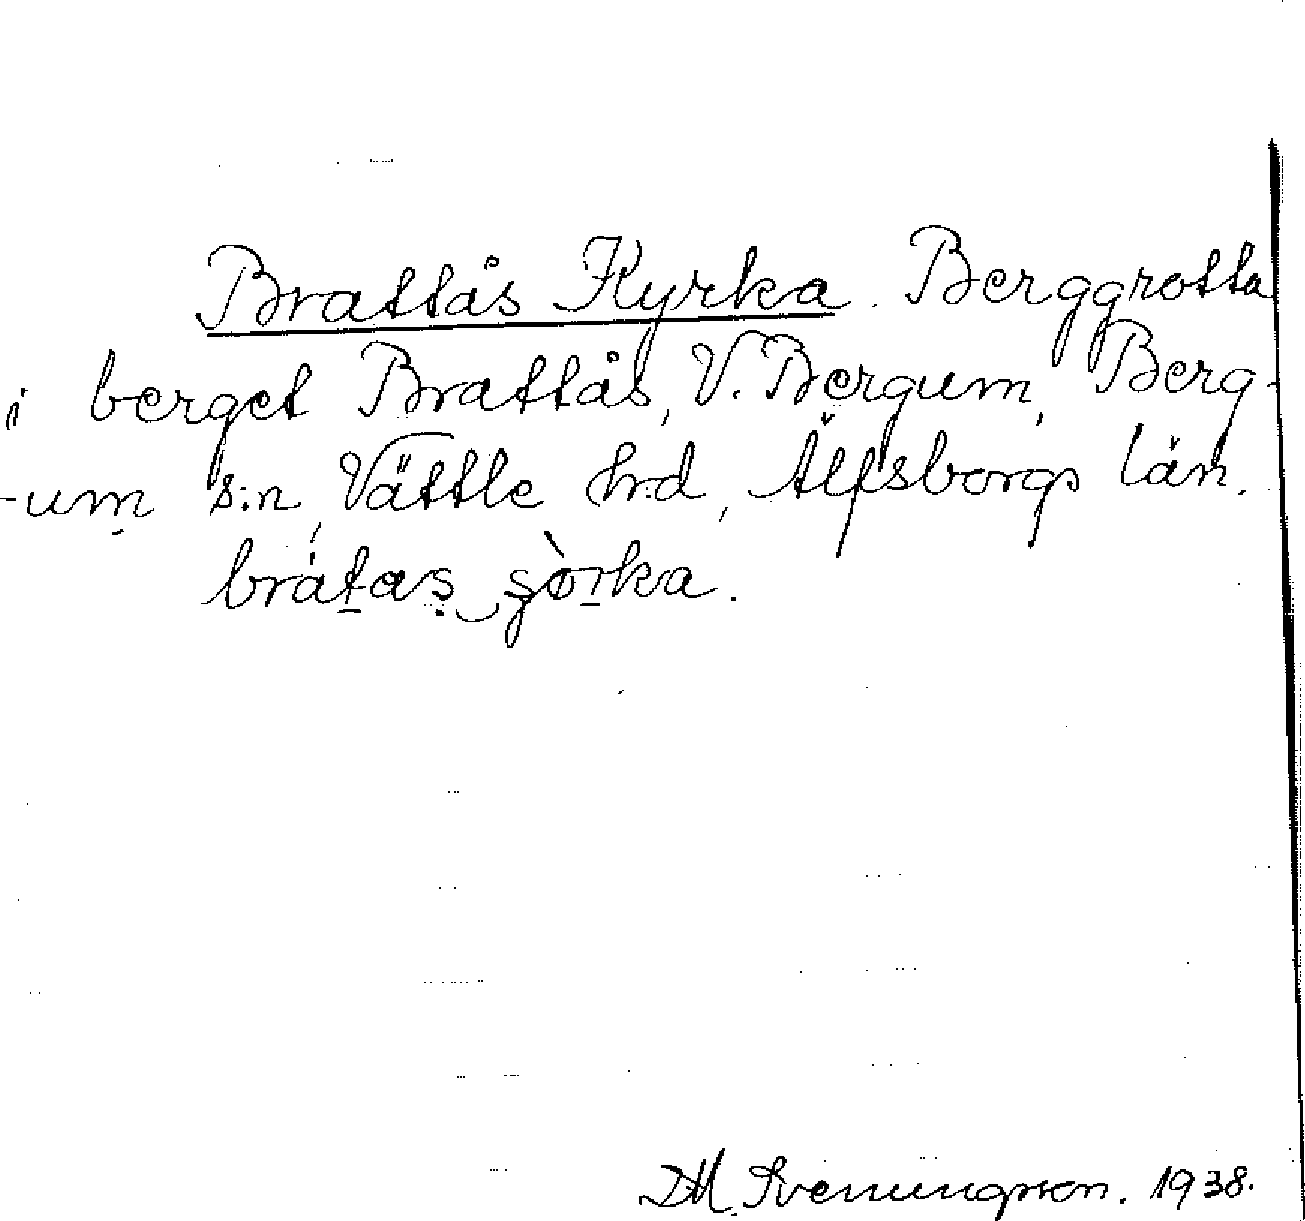 Brattås Kyrka. Berggrotta
i berget Brattås, V. Bergum, Berg-
-um s:n, Vättle hrd, Älfsborgs län.
brátas
D.M. Svenungsson. 1938.